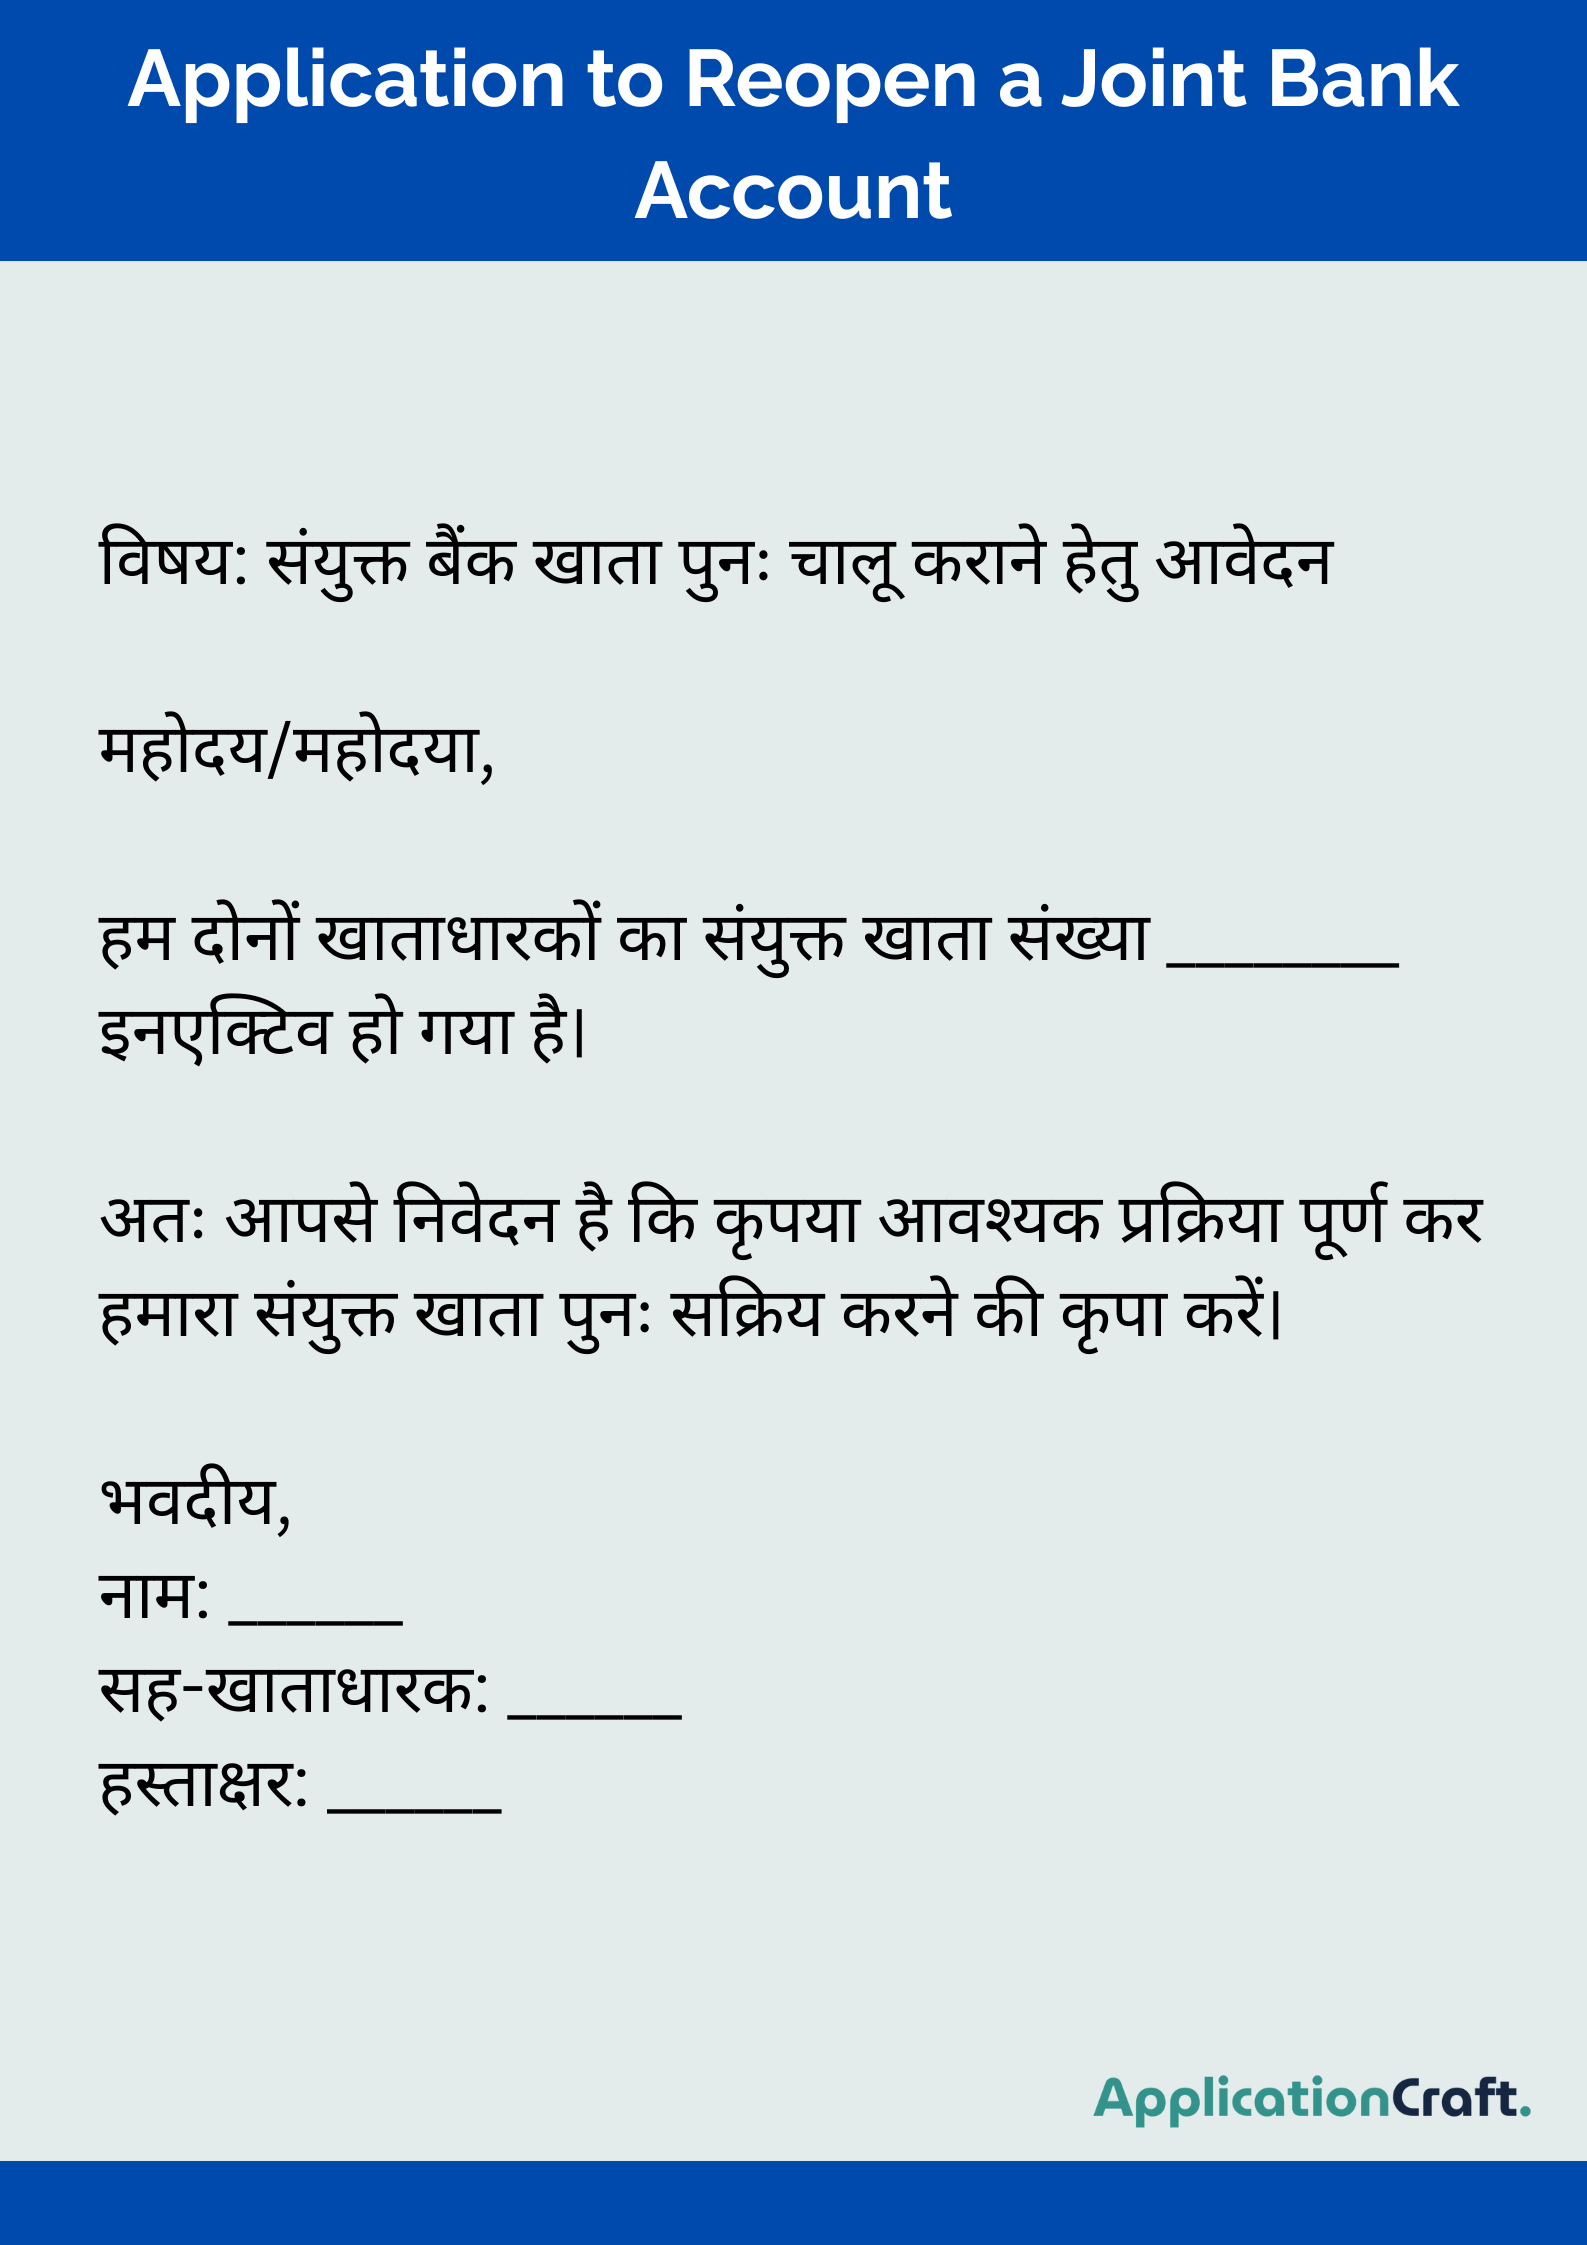 Application to Reopen a Joint Bank
Account
विषय: संयुक्त बैंक खाता पुनः चालू कराने हेतु आवेदन
महोदय/महोदया,
हम दोनों खाताधारकों का संयुक्त खाता संख्या ________
इनएक्टिव हो गया है।
अतः आपसे निवेदन है कि कृपया आवश्यक प्रक्रिया पूर्ण कर
हमारा संयुक्त खाता पुनः सक्रिय करने की कृपा करें।
भवदीय,
नाम: ______
सह-खाताधारक: ______
हस्ताक्षर: ______
ApplicationCraft.